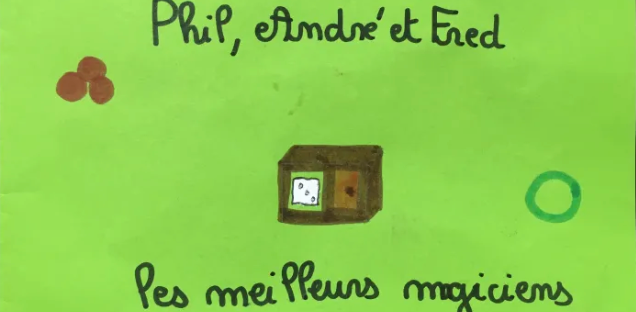 Phil, André et Fred
les meilleurs magiciens